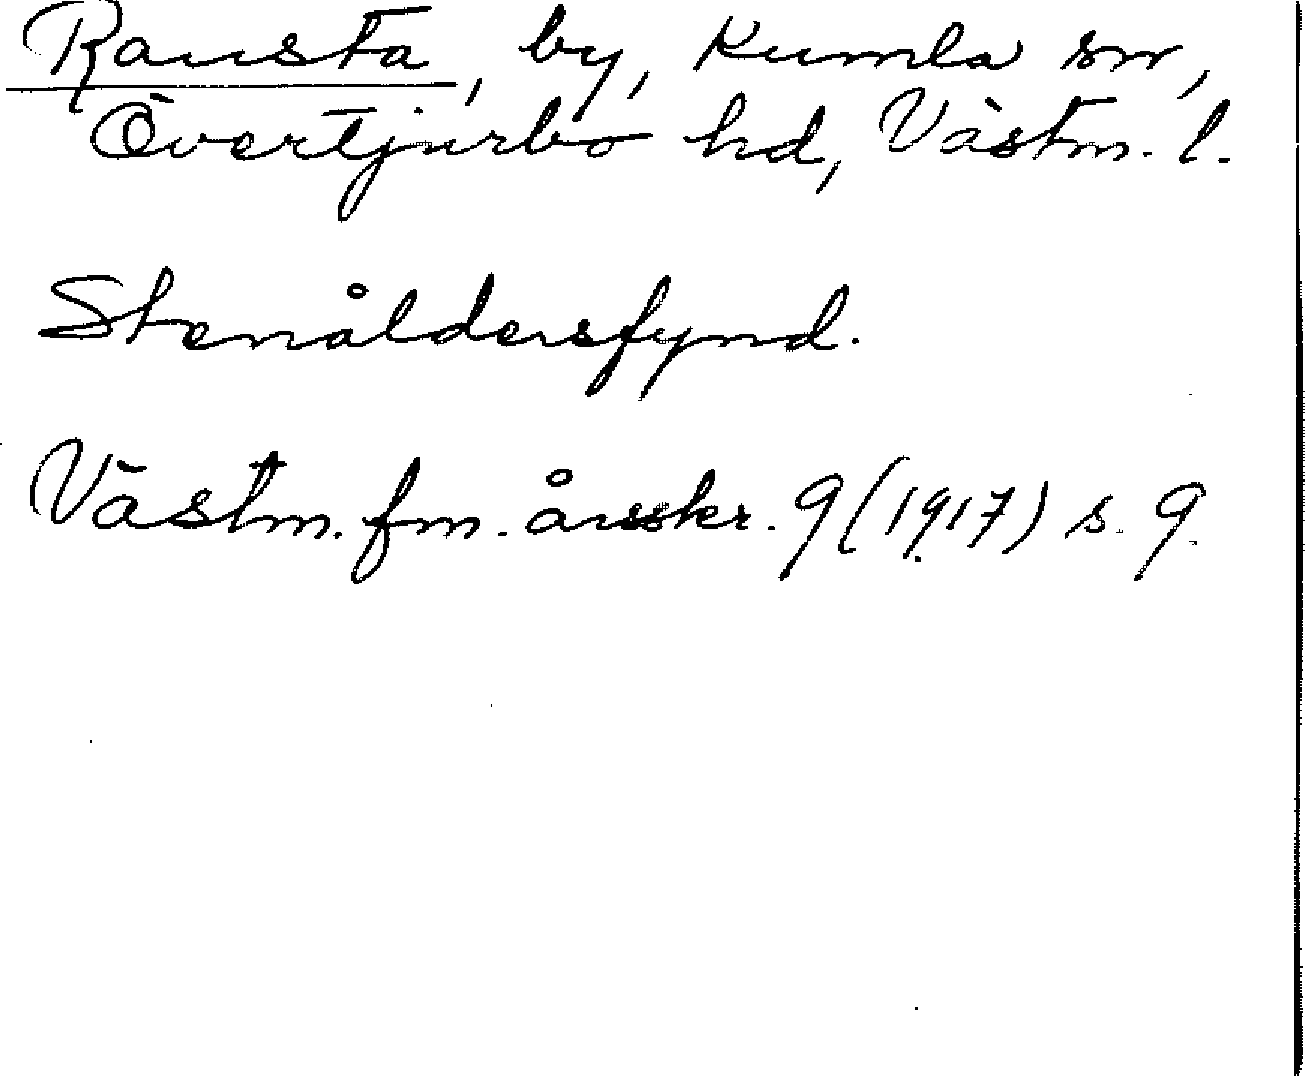 Ransta, by, Kumla sn,
Övertjurbo hd, Västm. l.
Stenåldersfynd.
Västm. fm. årsskr. 9 (1917) s. 9.